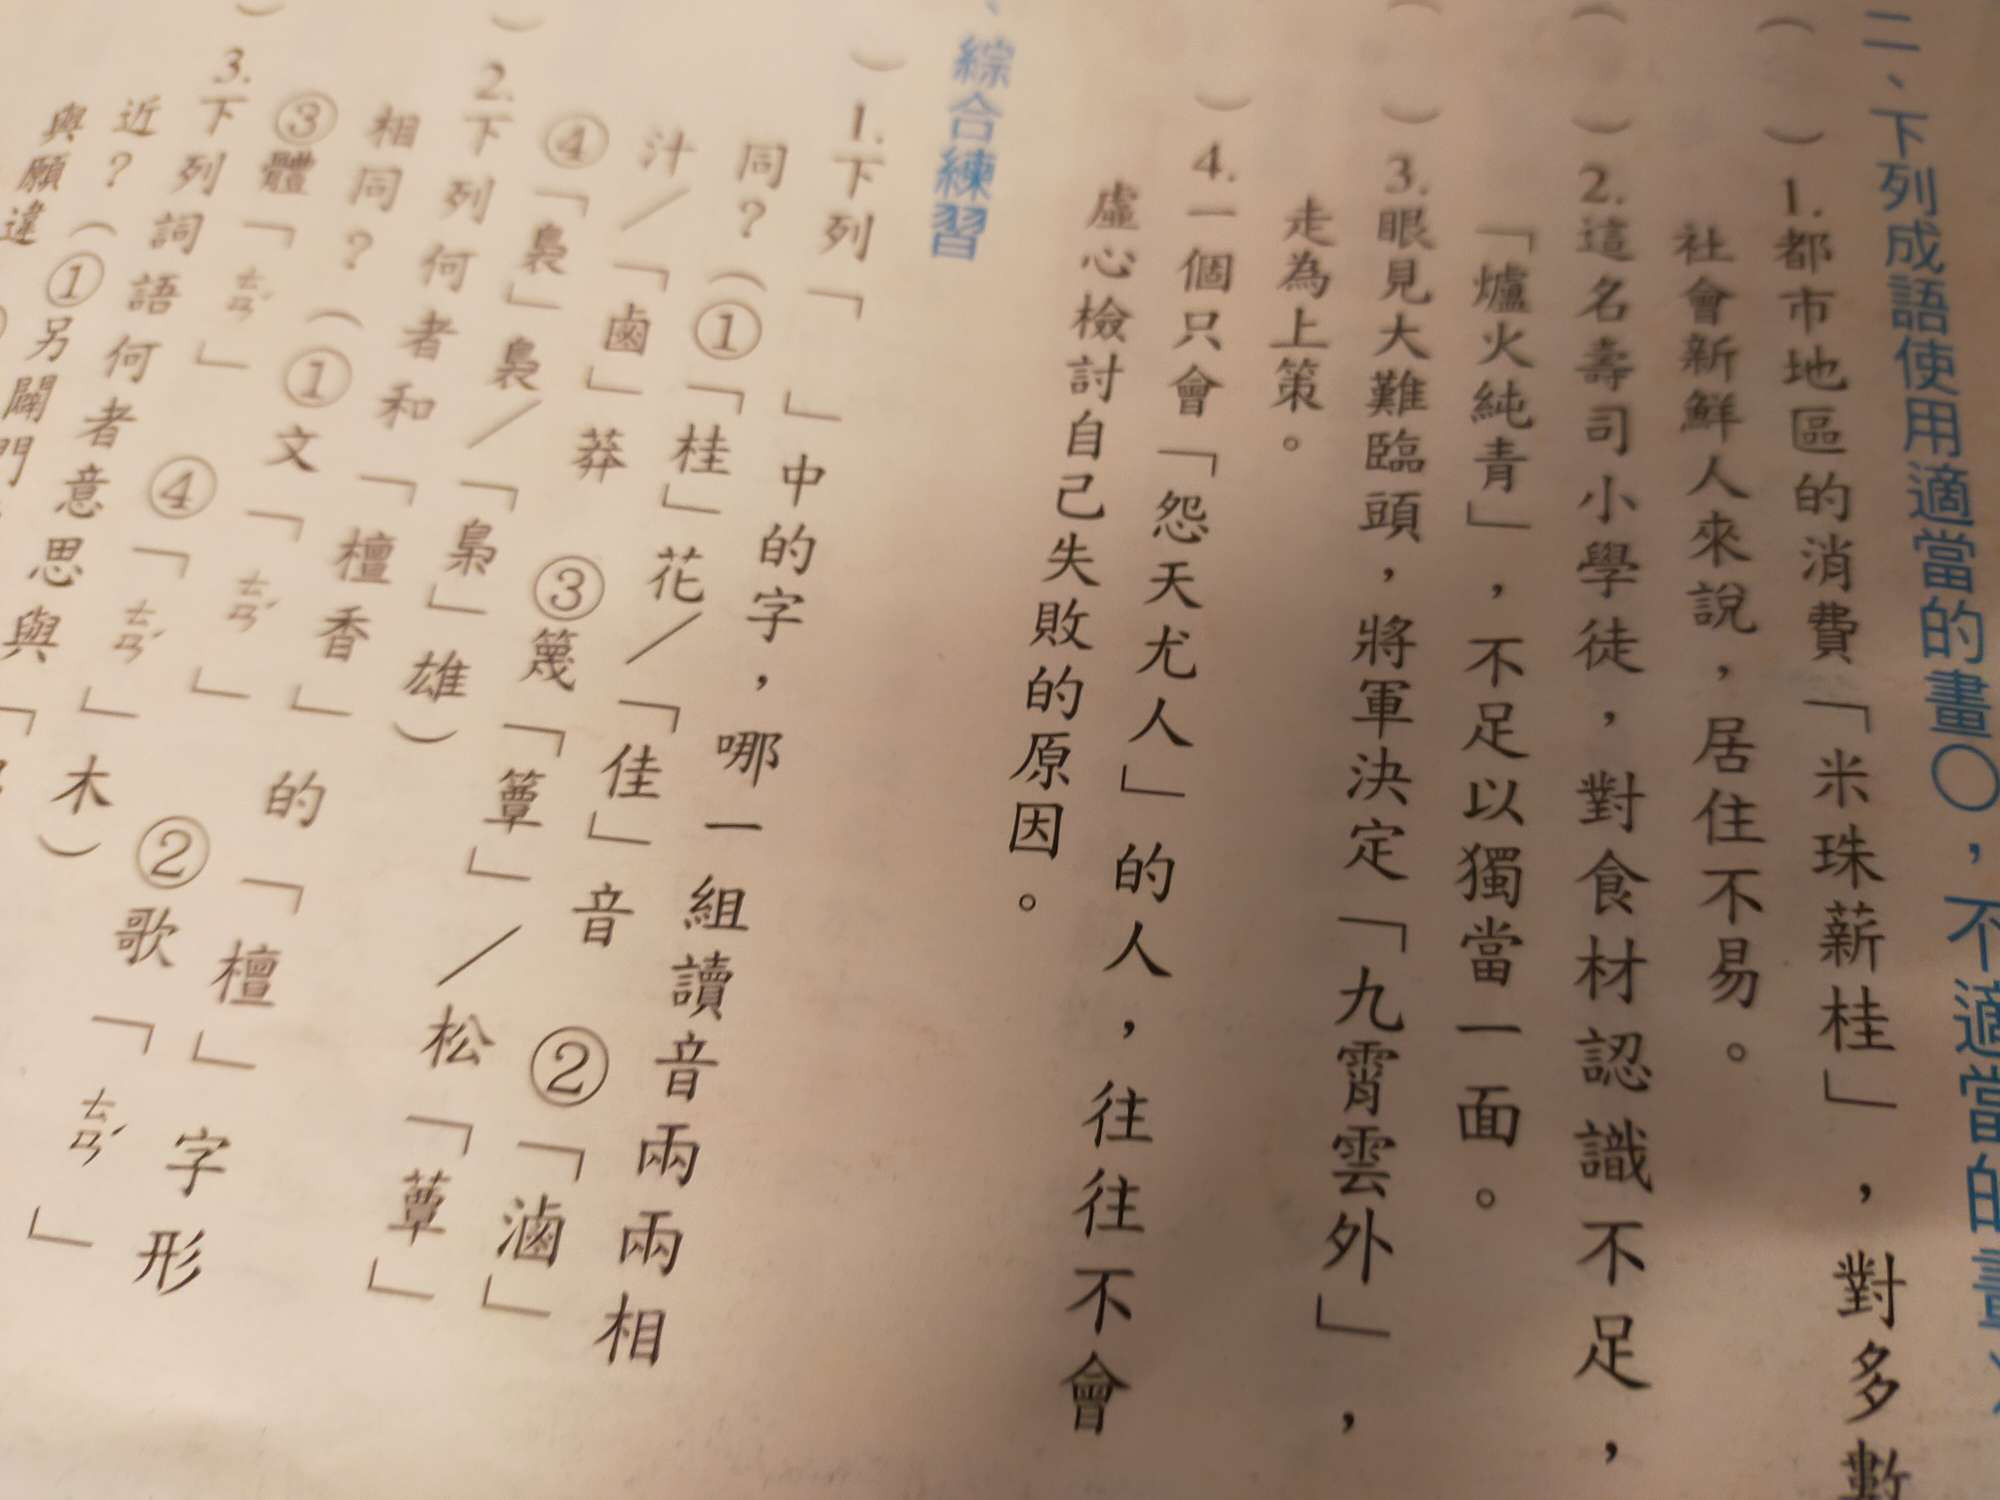 二、下列成語使用適當的畫○，不適當的畫
（　）1.都市地區的消費「米珠薪桂」，對多數
社會新鮮人來說，居住不易。
（　）2.這名壽司小學徒，對食材認識不足，
「爐火純青」，不足以獨當一面。
（　）3.眼見大難臨頭，將軍決定「九霄雲外」，
走為上策。
）4.一個只會「怨天尤人」的人，往往不會
虛心檢討自己失敗的原因。
、綜合練習
）1.下列「　」中的字，哪一組讀音兩兩相
同？（①「桂」花／「佳」音　②「滷」
汁／「鹵」莽　③篾「簟」／松「蕈」
④「裊」裊／「梟」雄）
）2.下列何者和「檀香」的「檀」字形
相同？（①文「ㄊㄢˊ」　②歌「ㄊㄢˊ」
③體「ㄊㄢˊ」　④「ㄊㄢˊ」木）
）3.下列詞語何者意思與「
近？（①另闢門
與願違